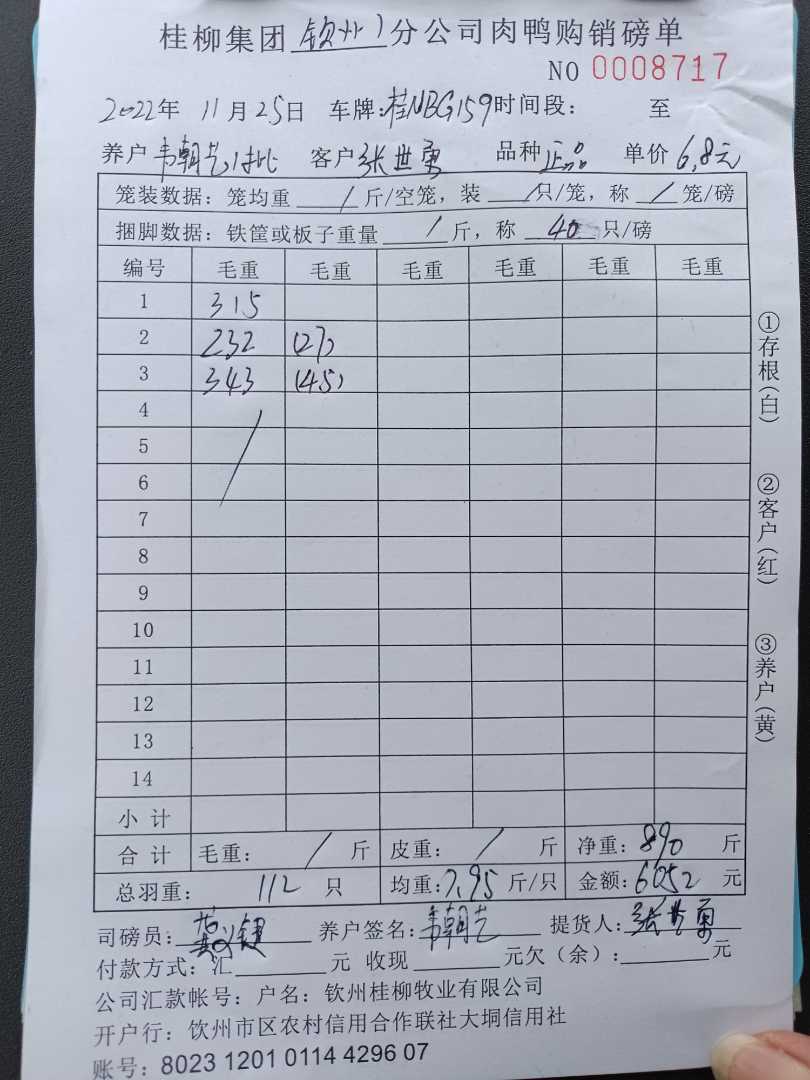 桂柳集团 钦州 分公司肉鸭购销磅单
NO 0008717
2022年 11月25日 车牌:桂NBG159时间段: 至
养户 韦朝 客户 张世 品种 正品 单价 6.8元
笼装数据:笼均重 / 斤/空笼,装 / 只/笼,称 / 笼/磅
捆脚数据:铁筐或板子重量 / 斤,称 40 只/磅
编号 毛重 毛重 毛重 毛重 毛重 毛重
1 315
2 232 (27)
3 343 (45)
4 /
5
6
7
8
9
10
11
12
13
14
小计
合计 毛重: / 斤 皮重: / 斤 净重: 890 斤
总羽重: 112 只 均重: 7.95 斤/只 金额: 6052 元
司磅员: 养户签名: 韦朝 提货人: 张世
付款方式:汇 元 收现 元欠(余): 元
公司汇款帐号:户名:钦州桂柳牧业有限公司
开户行:钦州市区农村信用合作联社大垌信用社
账号:8023 1201 0114 4296 07
①存根(白)
②客户(红)
③养户(黄)